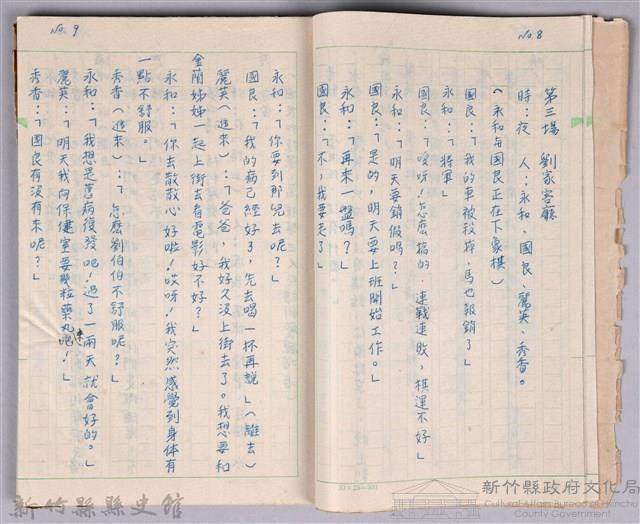 No 8
第三場　劉家客廳
時：夜　人：永和、國良、麗英、秀香。
（永和與國良正在下象棋）
國良：「我的車被殺掉，馬也報銷了」
永和：「將軍」
國良：「哎呀！怎麼搞的，連戰連敗，棋運不好」
永和：「明天要銷假嗎？」
國良：「是的，明天要上班開始工作。」
永和：「再來一盤嗎？」
國良：「不，我要走了」
No 9
永和：「你要到那兒去呢？」
國良：「我的病已經好了，先去喝一杯再說」（離去）
麗英（進來）：「爸爸，我好久沒上街去了。我想要和
金蘭姊姊一起上街去看電影好不好？」
永和：「你去散散心好啦！哎呀！我突然感覺到身体有
一點不舒服。」
秀香（進來）：「怎麼劉伯伯不舒服呢？」
永和：「我想是舊病復發吧！過了一兩天就會好的。」
麗英：「明天我向保健室要幾粒藥丸吧！」
秀香：「國良有沒有來呢？」
20×25=500
新竹縣縣史館
新竹縣政府文化局
Cultural Affairs Bureau of Hsinchu
County Government